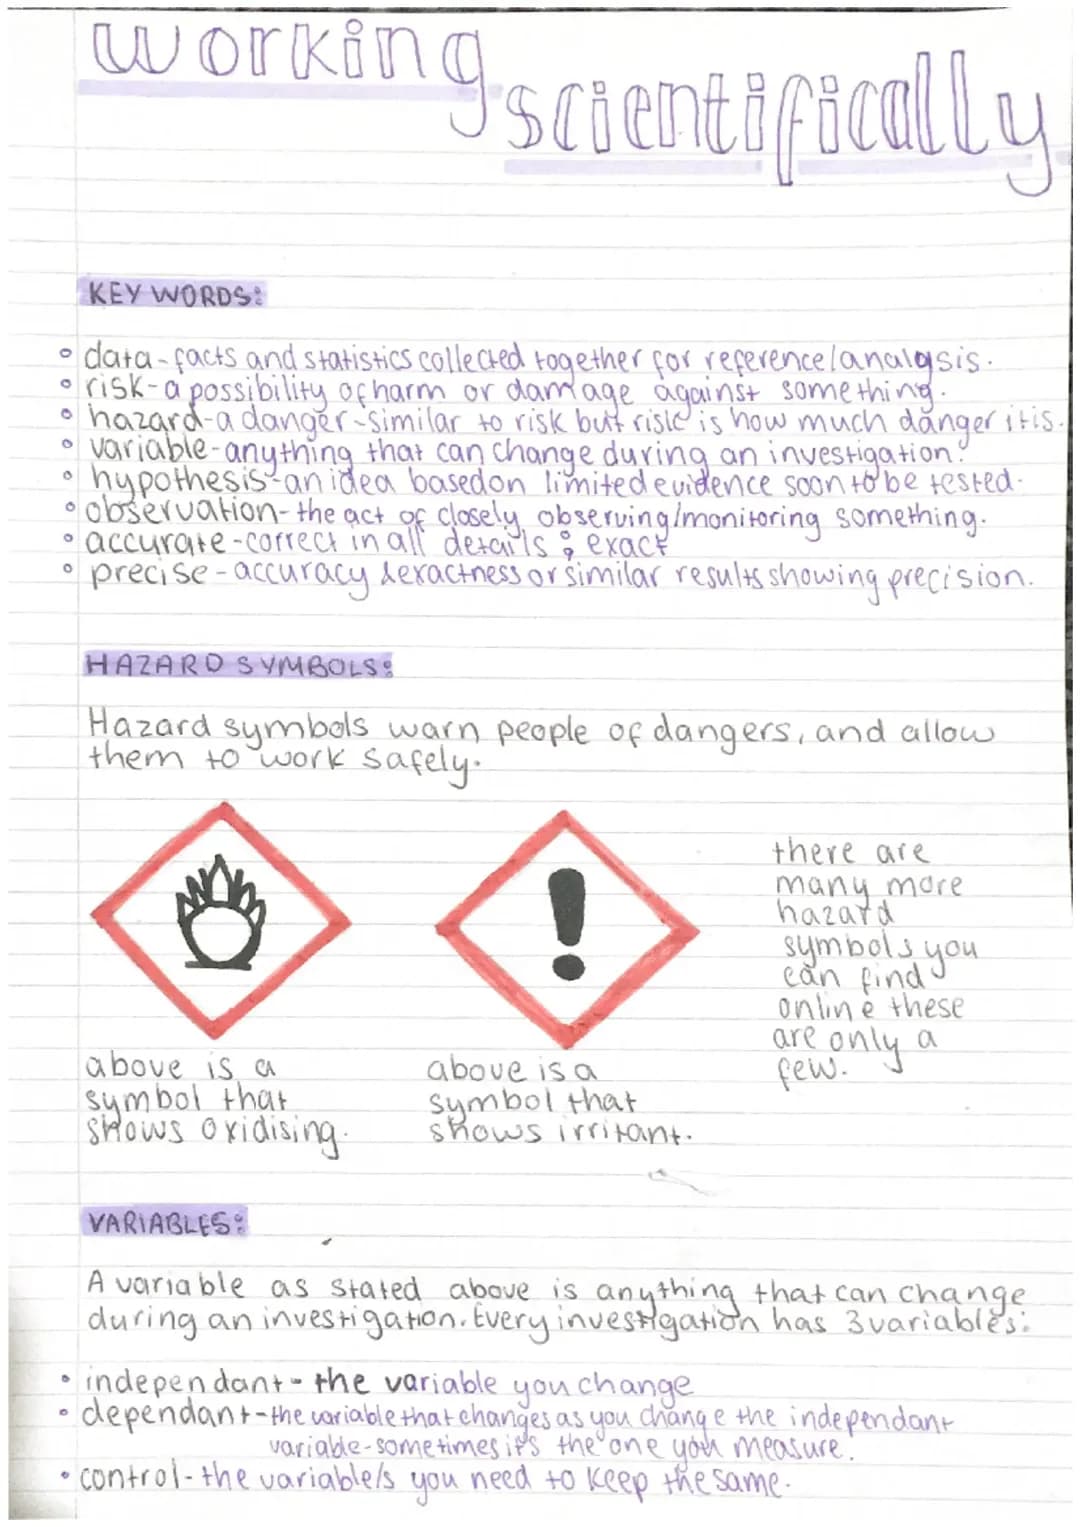 working
scientifically
KEY WORDS:
data - facts and statistics collected together for reference/analysis.
risk - a possibility of harm or damage against something.
hazard - a danger - similar to risk but risk is how much danger it is.
variable - anything that can change during an investigation.
hypothesis - an idea based on limited evidence soon to be tested.
observation - the act of closely observing/monitoring something.
accurate - correct in all details; exact
precise - accuracy & exactness or similar results showing precision.
HAZARD SYMBOLS:
Hazard symbols warn people of dangers, and allow
them to work safely.
there are
many more
hazard
symbols you
can find
online these
are only a
few.
above is a
symbol that
shows oxidising.
above is a
symbol that
shows irritant.
VARIABLES:
A variable as stated above is anything that can change
during an investigation. Every investigation has 3 variables:
independant - the variable you change
dependant - the variable that changes as you change the independant
variable - sometimes it's the one you measure.
control - the variable/s you need to keep the same.